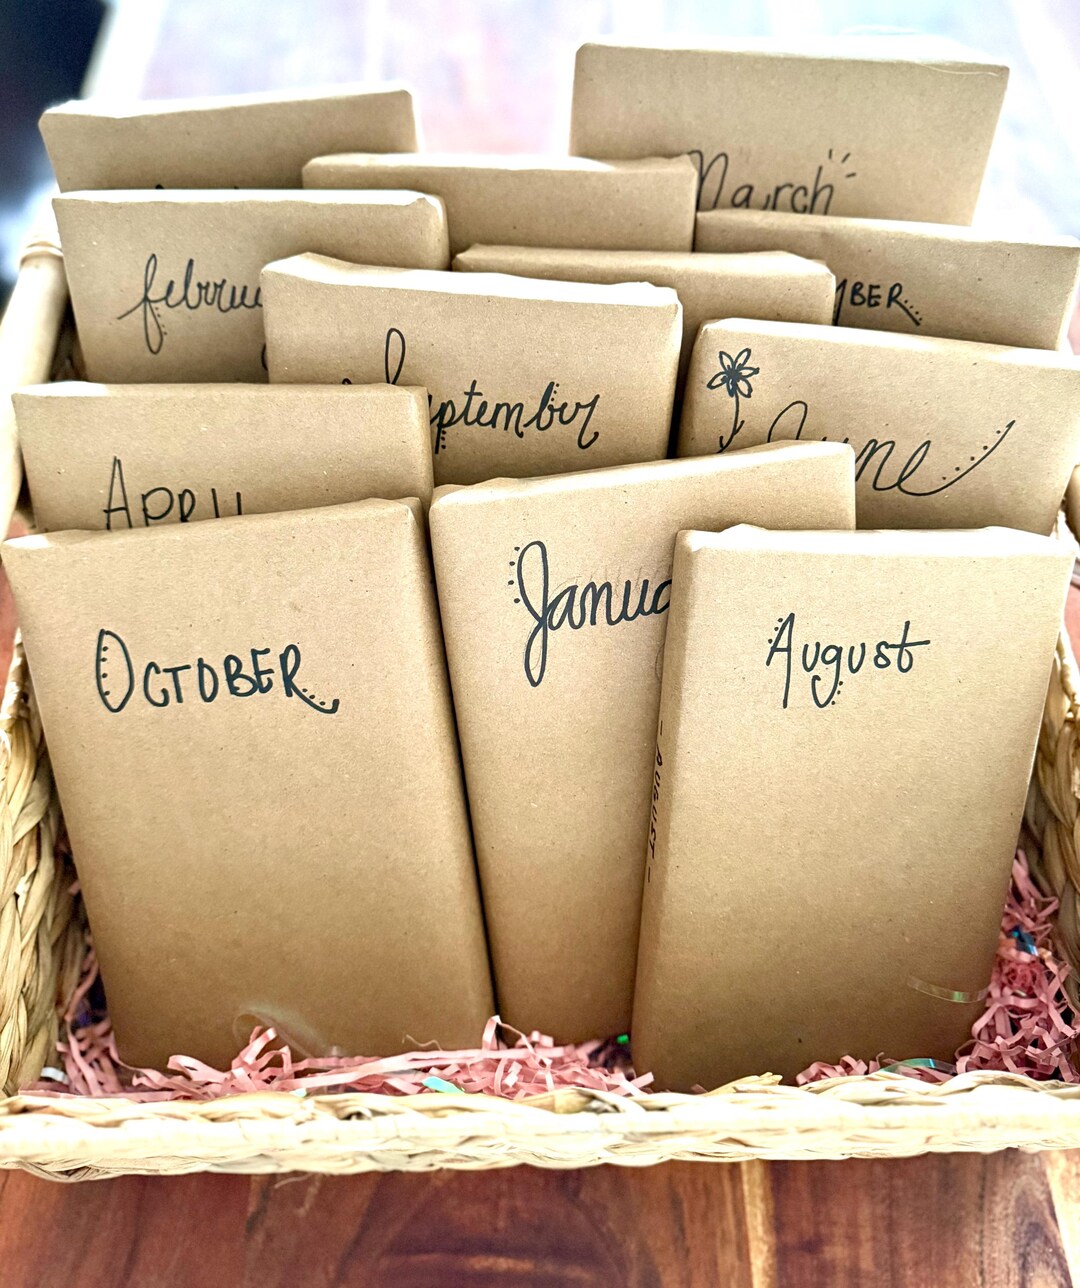 March
februa
MBER
September
June
APRIL
Janua
OCTOBER
August
- AUGUST -